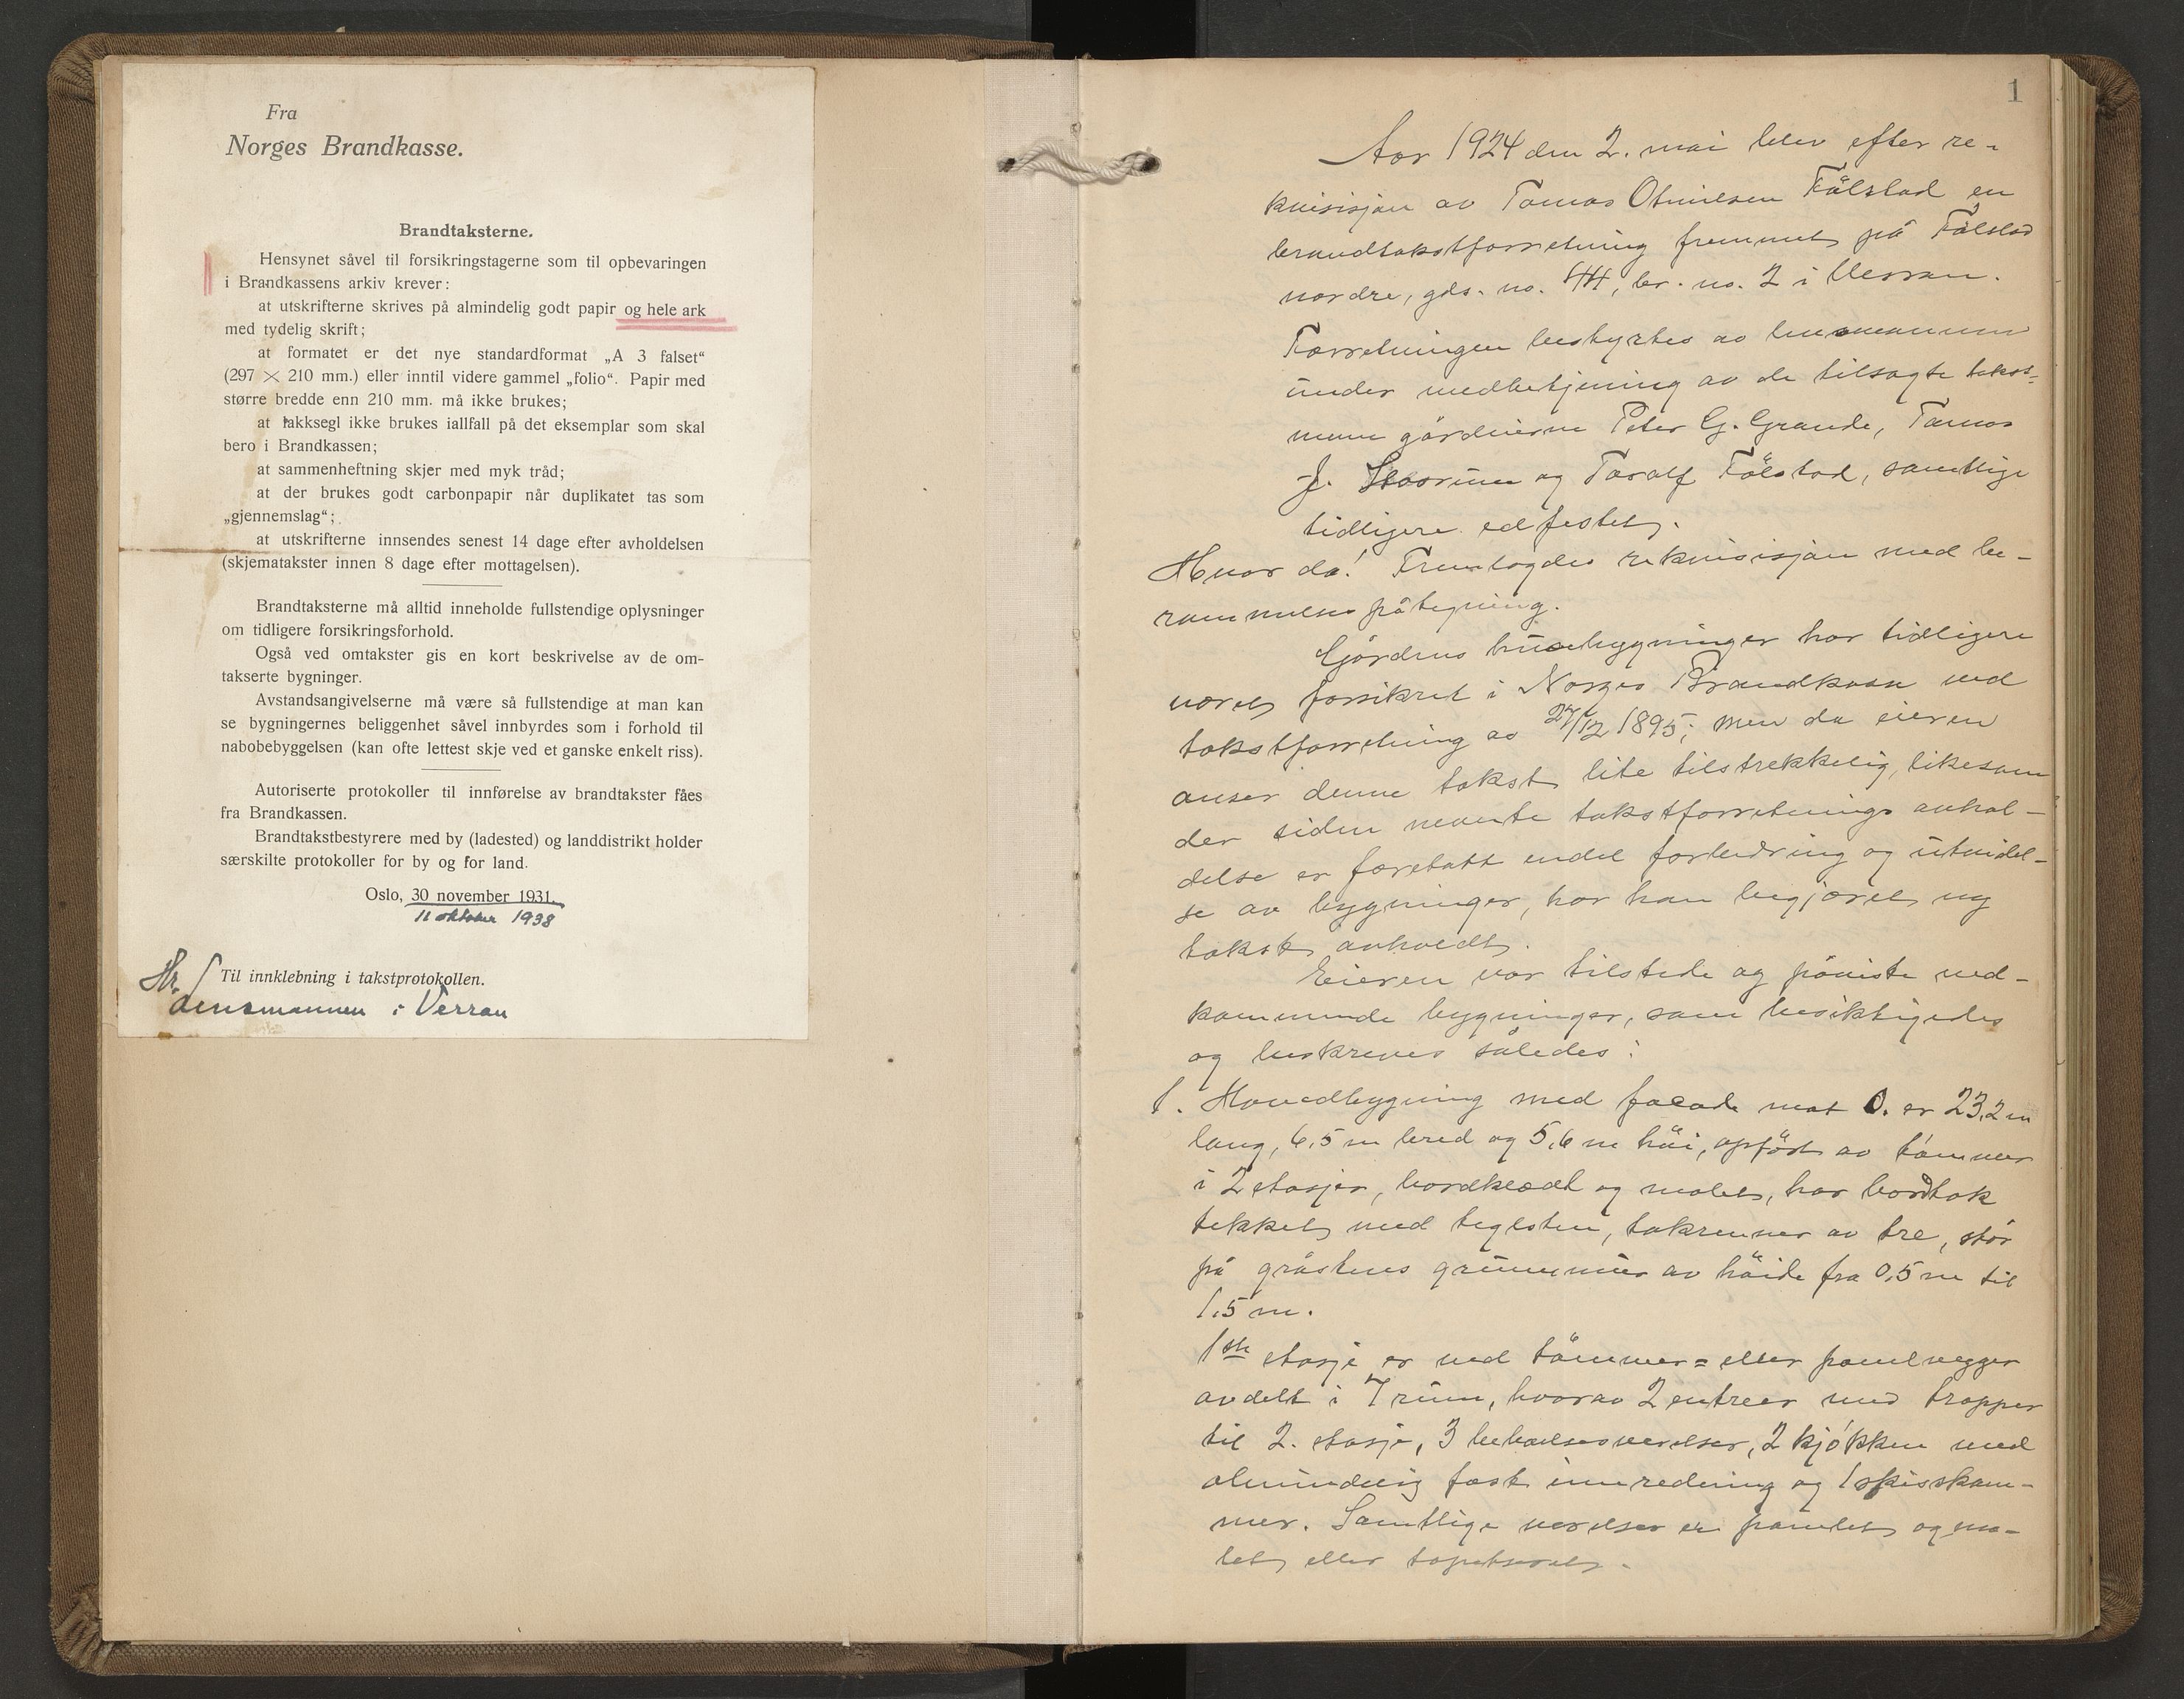 Fra
Norges Brandkasse.
Brandtaksterne.
Hensynet såvel til forsikringstagerne som til opbevaringen
i Brandkassens arkiv krever:
at utskrifterne skrives på almindelig godt papir og hele ark
med tydelig skrift;
at formatet er det nye standardformat „A 3 falset“
(297 × 210 mm.) eller inntil videre gammel „folio“. Papir med
større bredde enn 210 mm. må ikke brukes;
at lakksegl ikke brukes iallfall på det eksemplar som skal
bero i Brandkassen;
at sammenheftning skjer med myk tråd;
at der brukes godt carbonpapir når duplikatet tas som
„gjennemslag“;
at utskrifterne innsendes senest 14 dage efter avholdelsen
(skjematakster innen 8 dage efter mottagelsen).
Brandtaksterne må alltid inneholde fullstendige oplysninger
om tidligere forsikringsforhold.
Også ved omtakster gis en kort beskrivelse av de om-
takserte bygninger.
Avstandsangivelserne må være så fullstendige at man kan
se bygningernes beliggenhet såvel innbyrdes som i forhold til
nabobebyggelsen (kan ofte lettest skje ved et ganske enkelt riss).
Autoriserte protokoller til innførelse av brandtakster fåes
fra Brandkassen.
Brandtakstbestyrere med by (ladested) og landdistrikt holder
særskilte protokoller for by og for land.
Oslo, 30 november 1931.
11 oktober 1938
Til innklebning i takstprotokollen.
Hr.
Lensmannen i Verran
1
Aar 1924 den 2. mai blev efter re-
kvisisjon av Tomas Otnielsen Fölstad en
brandtakstforretning fremmet på Fölstad
nordre, gds. no. 44, br. no. 2 i Verran.
Forretningen bestyrtes av lensmannen
under medbetjening av de tilsagte takst-
menn gårdeierne Peter G. Grande, Tomas
J. og Toralf Fölstad, samtlige
tidligere edfestet.
Hvor da! Fremlagdes rekvisisjon med be-
rammelses påtegning.
Gårdens husebygninger har tidligere
været forsikret i Norges Brandkasse ved
takstforretning av 27/12 1895; men da eieren
anser denne takst lite tilstrekkelig, likesom
der siden nevnte takstforretnings avhol-
delse er foretatt endel forbedring og utvidel-
se av bygninger, har han begjæret ny
takst avholdt.
Eieren var tilstede og påviste ved-
kommende bygninger, som besiktigedes
og beskreves således:
1. Hovedbygning med facade mot O. er 23,2 m
lang, 6,5 m bred og 5,6 m höi, opfört av tömmer
i 2 etasjer, bordklædt og malet, har bordtak
tekket med teglsten, takrenner av tre, står
på gråstens grunnmur av höide fra 0,5 m til
1,5 m.
1ste etasje er ved tömmer= eller panelvegger
avdelt i 7 rum, hvorav 2 entreer med trapper
til 2. etasje, 3 beboelsesværelser, 2 kjökken med
almindelig fast innredning og 1 spiskam-
mer. Samtlige værelser er panelet og ma-
let eller tapetseret.